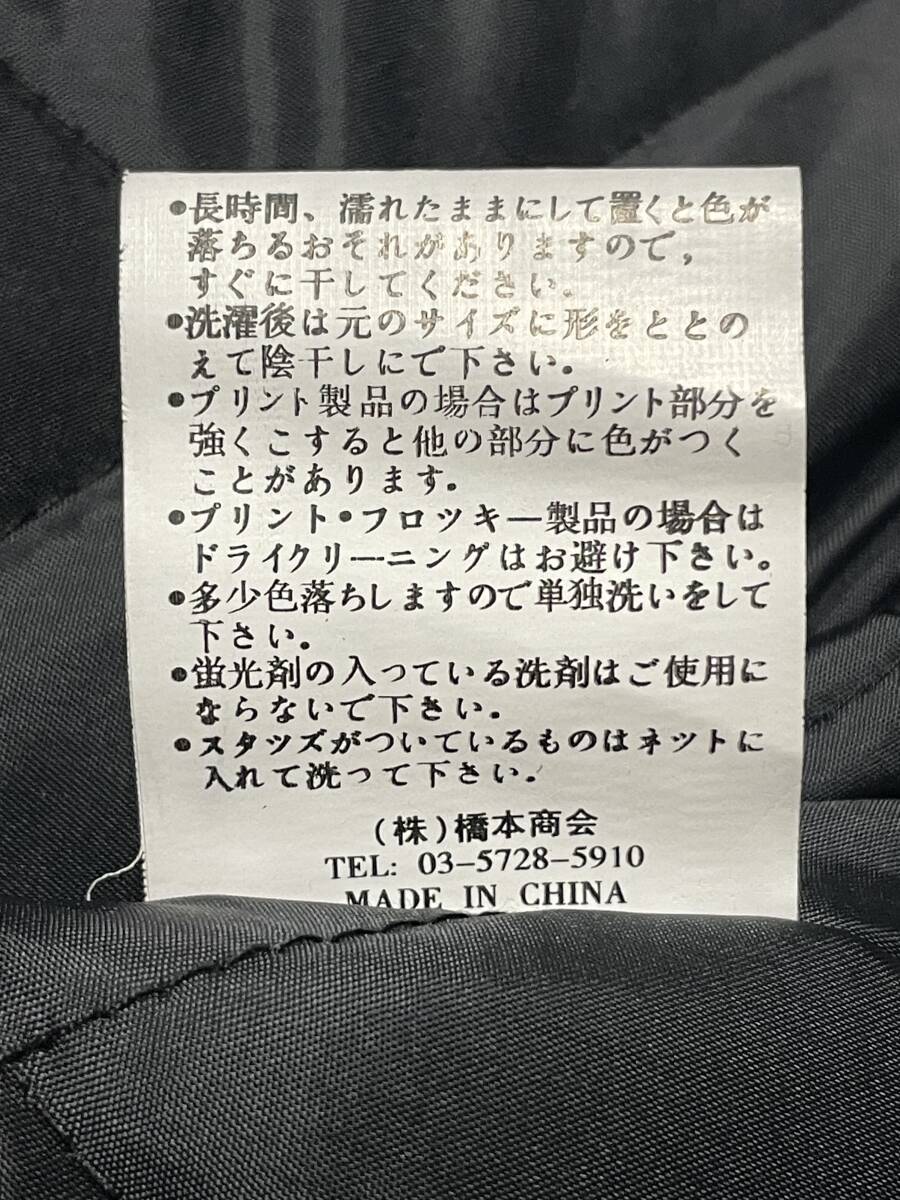 ●長時間、濡れたままにして置くと色が
落ちるおそれがありますので，
すぐに干してください。
●洗濯後は元のサイズに形をととの
えて陰干しにで下さい。
●プリント製品の場合はプリント部分を
強くこすると他の部分に色がつく
ことがあります。
●プリント・フロツキー製品の場合は
ドライクリーニングはお避け下さい。
●多少色落ちしますので単独洗いをして
下さい。
●蛍光剤の入っている洗剤はご使用に
ならないで下さい。
●スタツズがついているものはネットに
入れて洗って下さい。
(株)橋本商会
TEL: 03-5728-5910
MADE IN CHINA